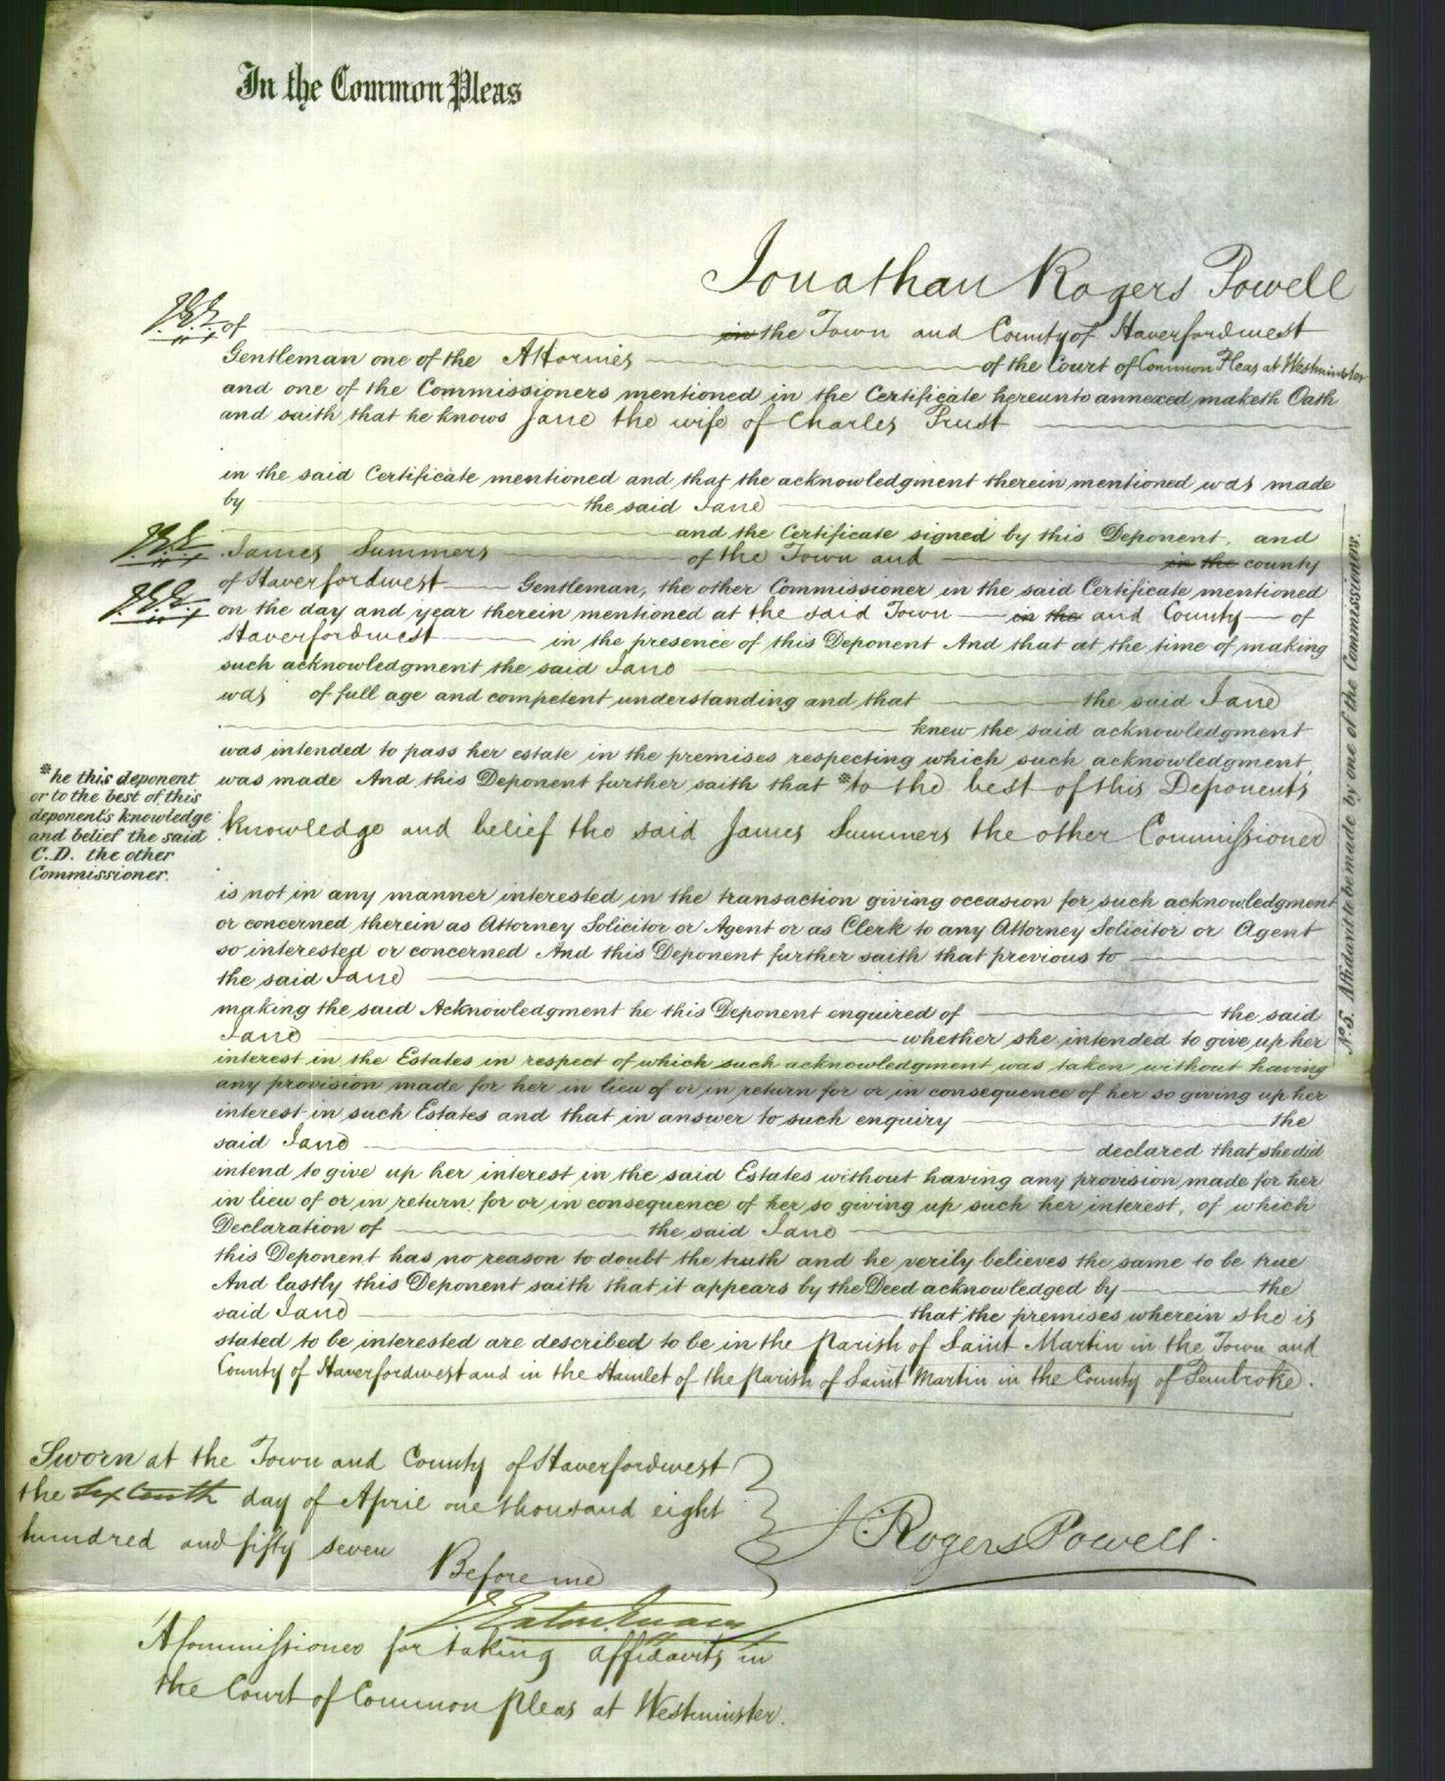 In the Common Pleas
Jonathan Rogers Powell
of in the Town and County of Haverfordwest
Gentleman one of the Attornies of the Court of Common Pleas at Westminster
and one of the Commissioners mentioned in the Certificate hereunto annexed maketh Oath
and saith that he knows Jane the wife of Charles Prust
in the said Certificate mentioned and that the acknowledgment therein mentioned was made
by the said Jane
and the Certificate signed by this Deponent, and
James Summers of the Town and in the county
of Haverfordwest Gentleman, the other Commissioner in the said Certificate mentioned
on the day and year therein mentioned at the said Town in the and County of
Haverfordwest in the presence of this Deponent And that at the time of making
such acknowledgment the said Jane
was of full age and competent understanding and that the said Jane
knew the said acknowledgment
was intended to pass her estate in the premises respecting which such acknowledgment
was made And this Deponent further saith that * to the best of this Deponents
knowledge and belief the said James Summers the other Commissioner
*he this deponent
or to the best of this
deponent's knowledge
and belief the said
C.D. the other
Commissioner.
is not in any manner interested in the transaction giving occasion for such acknowledgment
or concerned therein as Attorney Solicitor or Agent or as Clerk to any Attorney Solicitor or Agent
so interested or concerned And this Deponent further saith that previous to
the said Jane
making the said Acknowledgment he this Deponent enquired of the said
Jane whether she intended to give up her
interest in the Estates in respect of which such acknowledgment was taken without having
any provision made for her in lieu of or in return for or in consequence of her so giving up her
interest in such Estates and that in answer to such enquiry the
said Jane declared that she did
intend to give up her interest in the said Estates without having any provision made for her
in lieu of or in return for or in consequence of her so giving up such her interest, of which
Declaration of the said Jane
this Deponent has no reason to doubt the truth and he verily believes the same to be true
And lastly this Deponent saith that it appears by the Deed acknowledged by the
said Jane that the premises wherein she is
stated to be interested are described to be in the Parish of Saint Martin in the Town and
County of Haverfordwest and in the Hamlet of the Parish of Saint Martin in the County of Pembroke.
No. 5. Affidavit to be made by one of the Commissioners.
Sworn at the Town and County of Haverfordwest
the Sixteenth day of April one thousand eight
hundred and fifty seven
Before me
J. Rogers Powell.
A Commissioner for taking affidavits in
the Court of Common Pleas at Westminster.